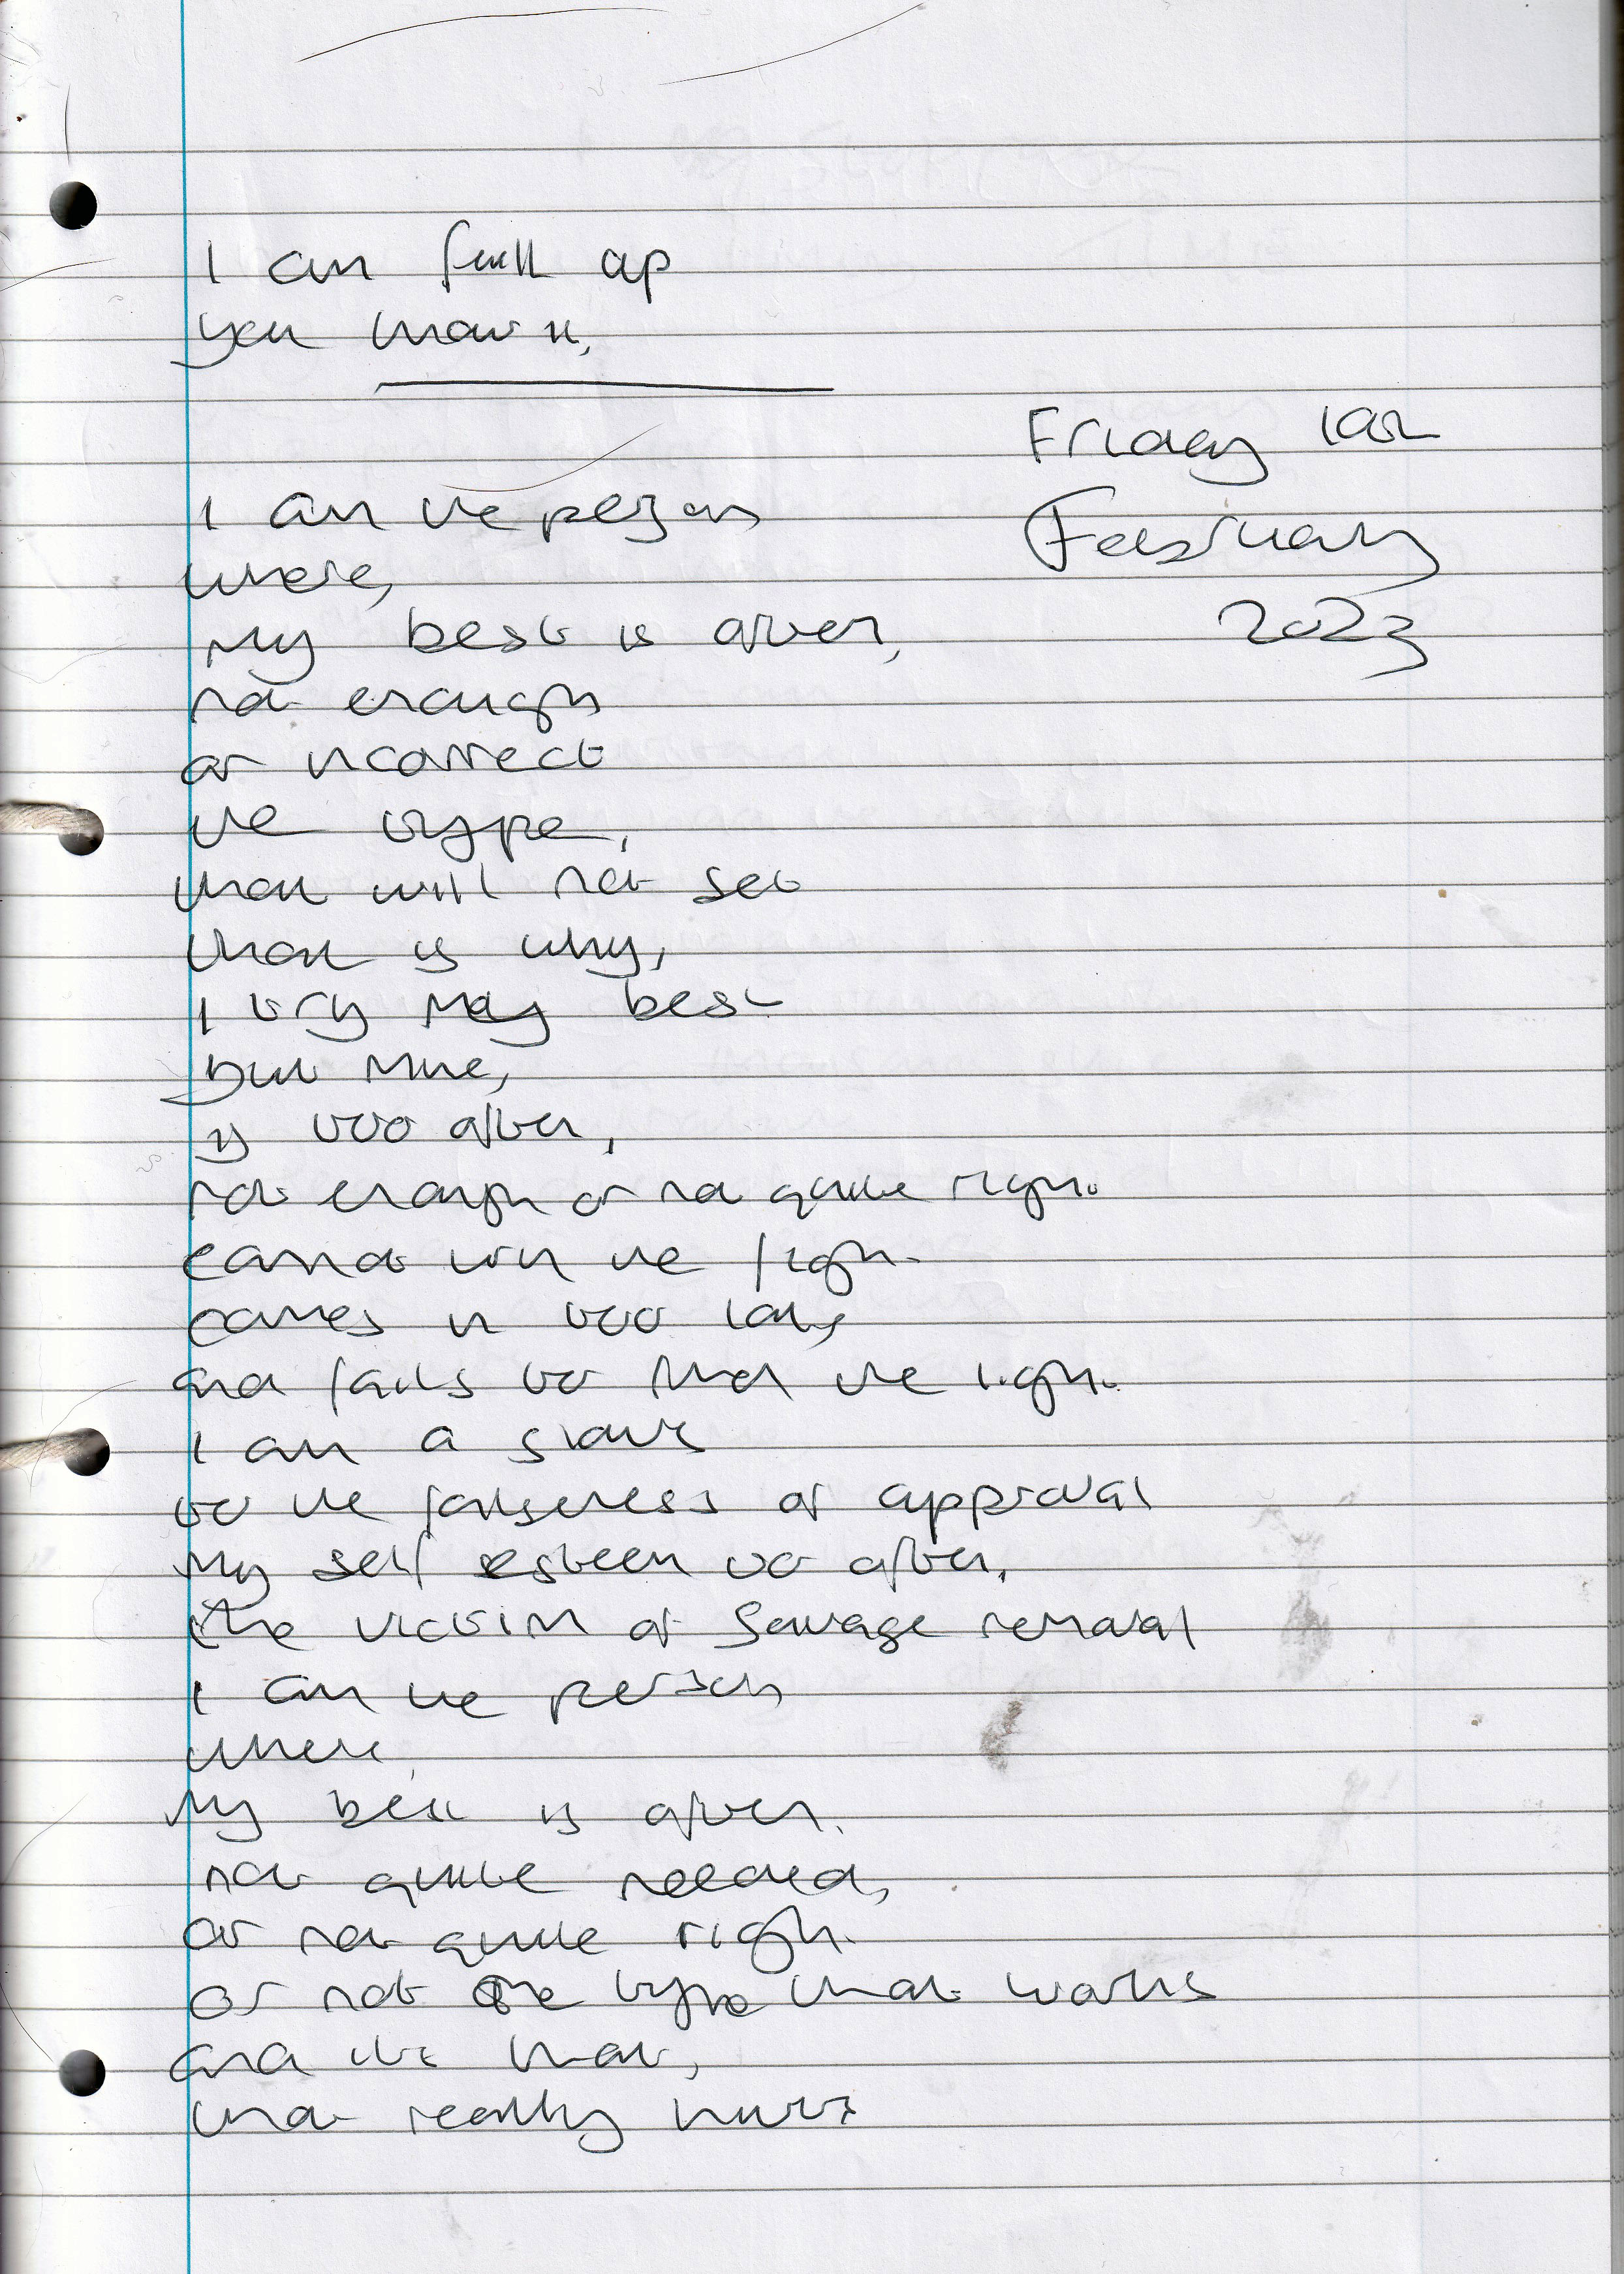 I am full up
you know it,
Friday 10th
February
2023
I am the person
where,
my best is often,
not enough
or incorrect
the type,
that will not get
that is why,
I try may best
but mine,
is too often,
not enough or not quite right.
cannot win the fight
comes in too late
and fails to find the light.
I am a slave
to the falseness of approval
My self esteem too often,
the victim of savage removal
I am the person
where,
My best is often,
not quite needed,
or not quite right.
or not the type that works
and its that,
that really hurts